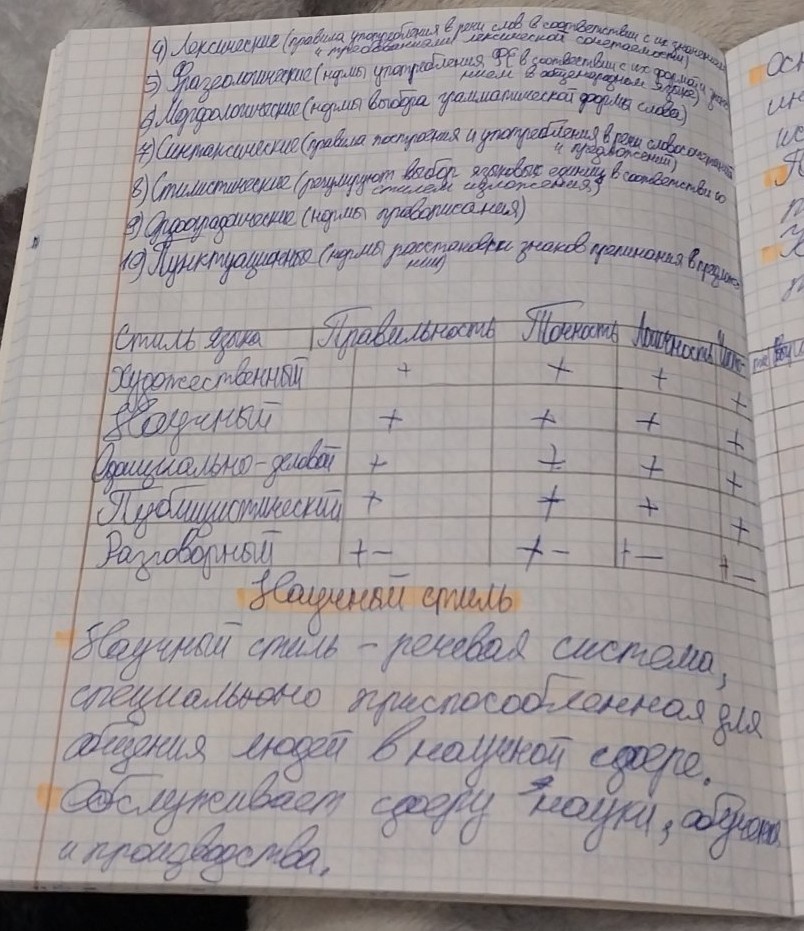 4) Лексические (правила употребления в речи слов в соответствии с их значением
и требованиями лексической сочетаемости)
5) Фразеологические (нормы употребления ФЕ в соответствии с их формой и значе
нием в общенародном языке)
6) Морфологические (нормы выбора грамматической формы слова)
7) Синтаксические (правила построения и употребления в речи словосочетаний
и предложений)
8) Стилистические (регулируют выбор языковых единиц в соответствии со
стилем изложения)
9) Орфографические (нормы правописания)
10) Пунктуационные (нормы расстановки знаков препинания в предложе
нии)
Стиль языка Правильность Точность Логичность
Художественный + + + +
Научный + + + +
Официально-деловой + + + +
Публицистический + + + +
Разговорный +- +- +- +-
Научный стиль
Научный стиль - речевая система,
специально приспособленная для
общения людей в научной сфере.
Обслуживает сферу науки, обучения
и производства.